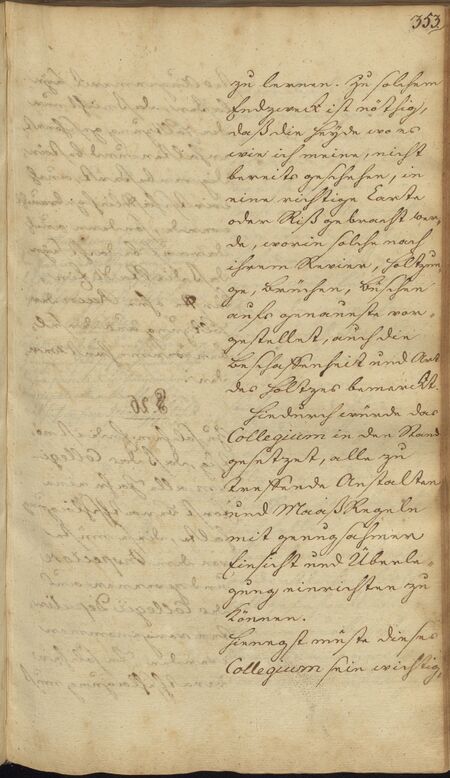 353.
zu lernen. Zu solchem
Endzweck ist nöthig,
daß die Heyde wo es
wie ich meine, nicht
bereits geschehen, in
eine richtige Carte
oder Riß gebracht wer,
de, worin solche nach
ihrem Revier, Höltzun,
ge, Brüchen, Büschen
aufs genaueste vor-
gestellet, auch die
Beschaffenheit und Art
des Höltzes bemerckt.
Hiedurch würde das
Collegium in den Stand
gesetzet, alle zu
treffende Anstalten
und Maaß Regeln
mit genugsahmer
Einsicht und Überle-
gung einrichten zu
können.
Hienegst müste dieses
Collegium sein wichtig,